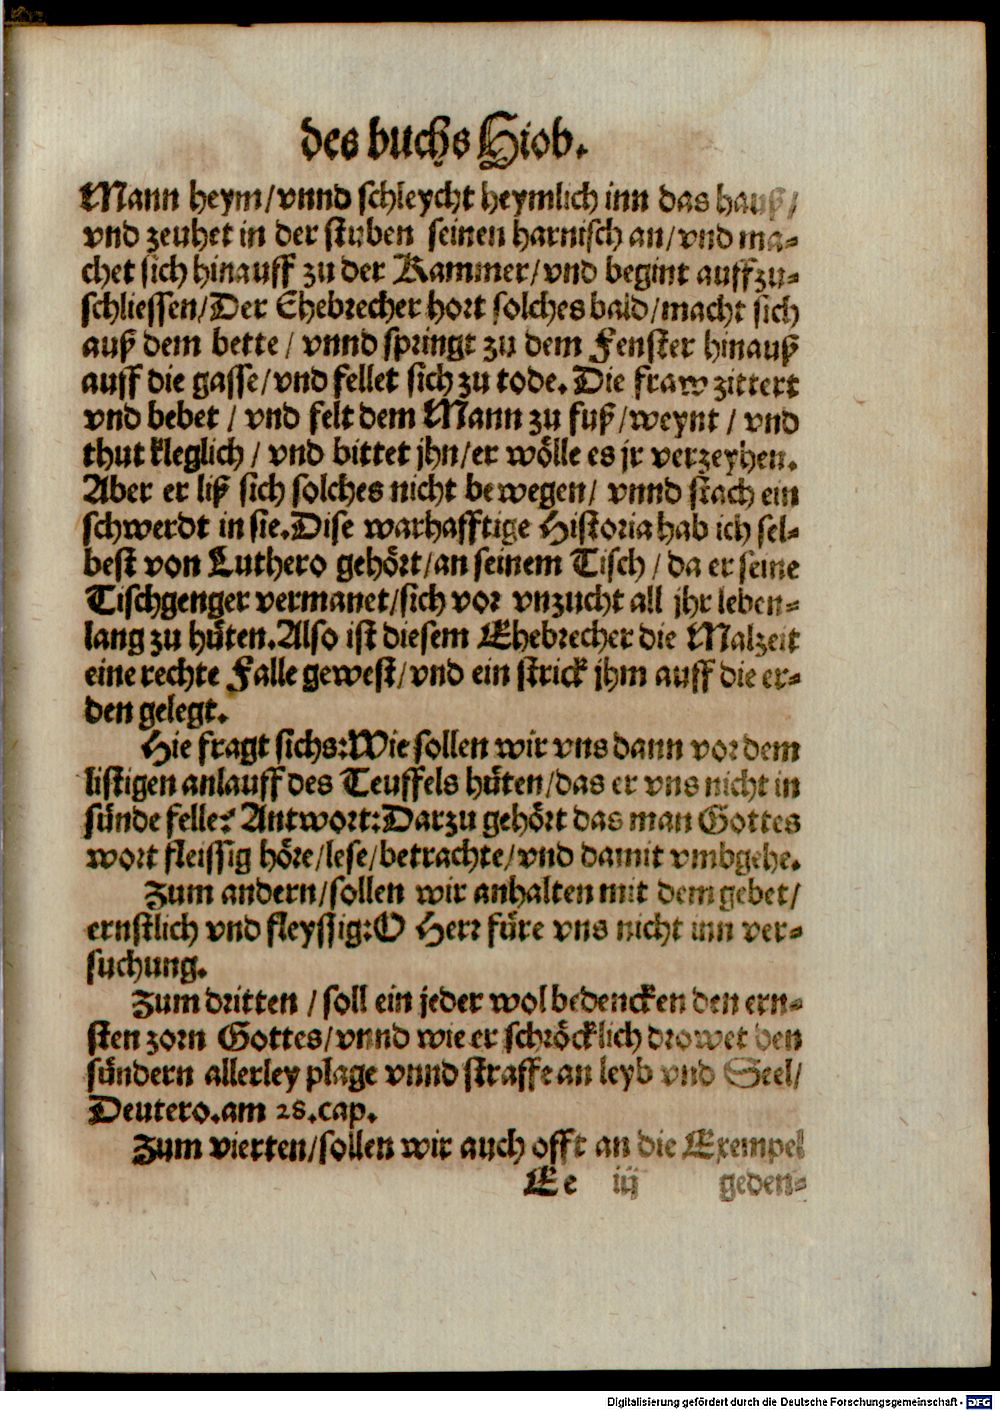 des buchs Hiob.
Mann heym/vnnd schleycht heymlich inn das hauß/
vnd zeuhet in der stuben seinen harnisch an/vnd ma-
chet sich hinauff zu der Kammer/vnd begint auffzu-
schliessen/Der Ehebrecher hort solches bald/macht sich
auß dem bette/ vnnd springt zu dem Fenster hinauß
auff die gasse/vnd fellet sich zu tode. Die fraw zittert
vnd bebet / vnd felt dem Mann zu fuß/weynt / vnd
thut kleglich / vnd bittet jhn/er wölle es jr verzeyhen.
Aber er liß sich solches nicht bewegen/ vnnd stach ein
schwerdt in sie. Dise warhafftige Historia hab ich sel-
best von Luthero gehört/an seinem Tisch / da er seine
Tischgenger vermanet/sich vor vnzucht all jhr leben-
lang zu hüten. Also ist diesem Ehebrecher die Malzeit
eine rechte Falle gewest/vnd ein strick jhm auff die er-
den gelegt.
Hie fragt sichs: Wie sollen wir vns dann vor dem
listigen anlauff des Teuffels hüten/das er vns nicht in
sünde felle? Antwort: Darzu gehört das man Gottes
wort fleissig höre/lese/betrachte/vnd damit vmbgehe.
Zum andern/sollen wir anhalten mit dem gebet/
ernstlich vnd fleyssig: O Herr füre vns nicht inn ver-
suchung.
Zum dritten / soll ein jeder wol bedencken den ern-
sten zorn Gottes/vnnd wie er schröcklich drowet den
sündern allerley plage vnnd straffe an leyb vnd Seel/
Deutero. am 28. cap.
Zum vierten/sollen wir auch offt an die Exempel
Ee iij geden-
Digitalisierung gefördert durch die Deutsche Forschungsgemeinschaft - DFG